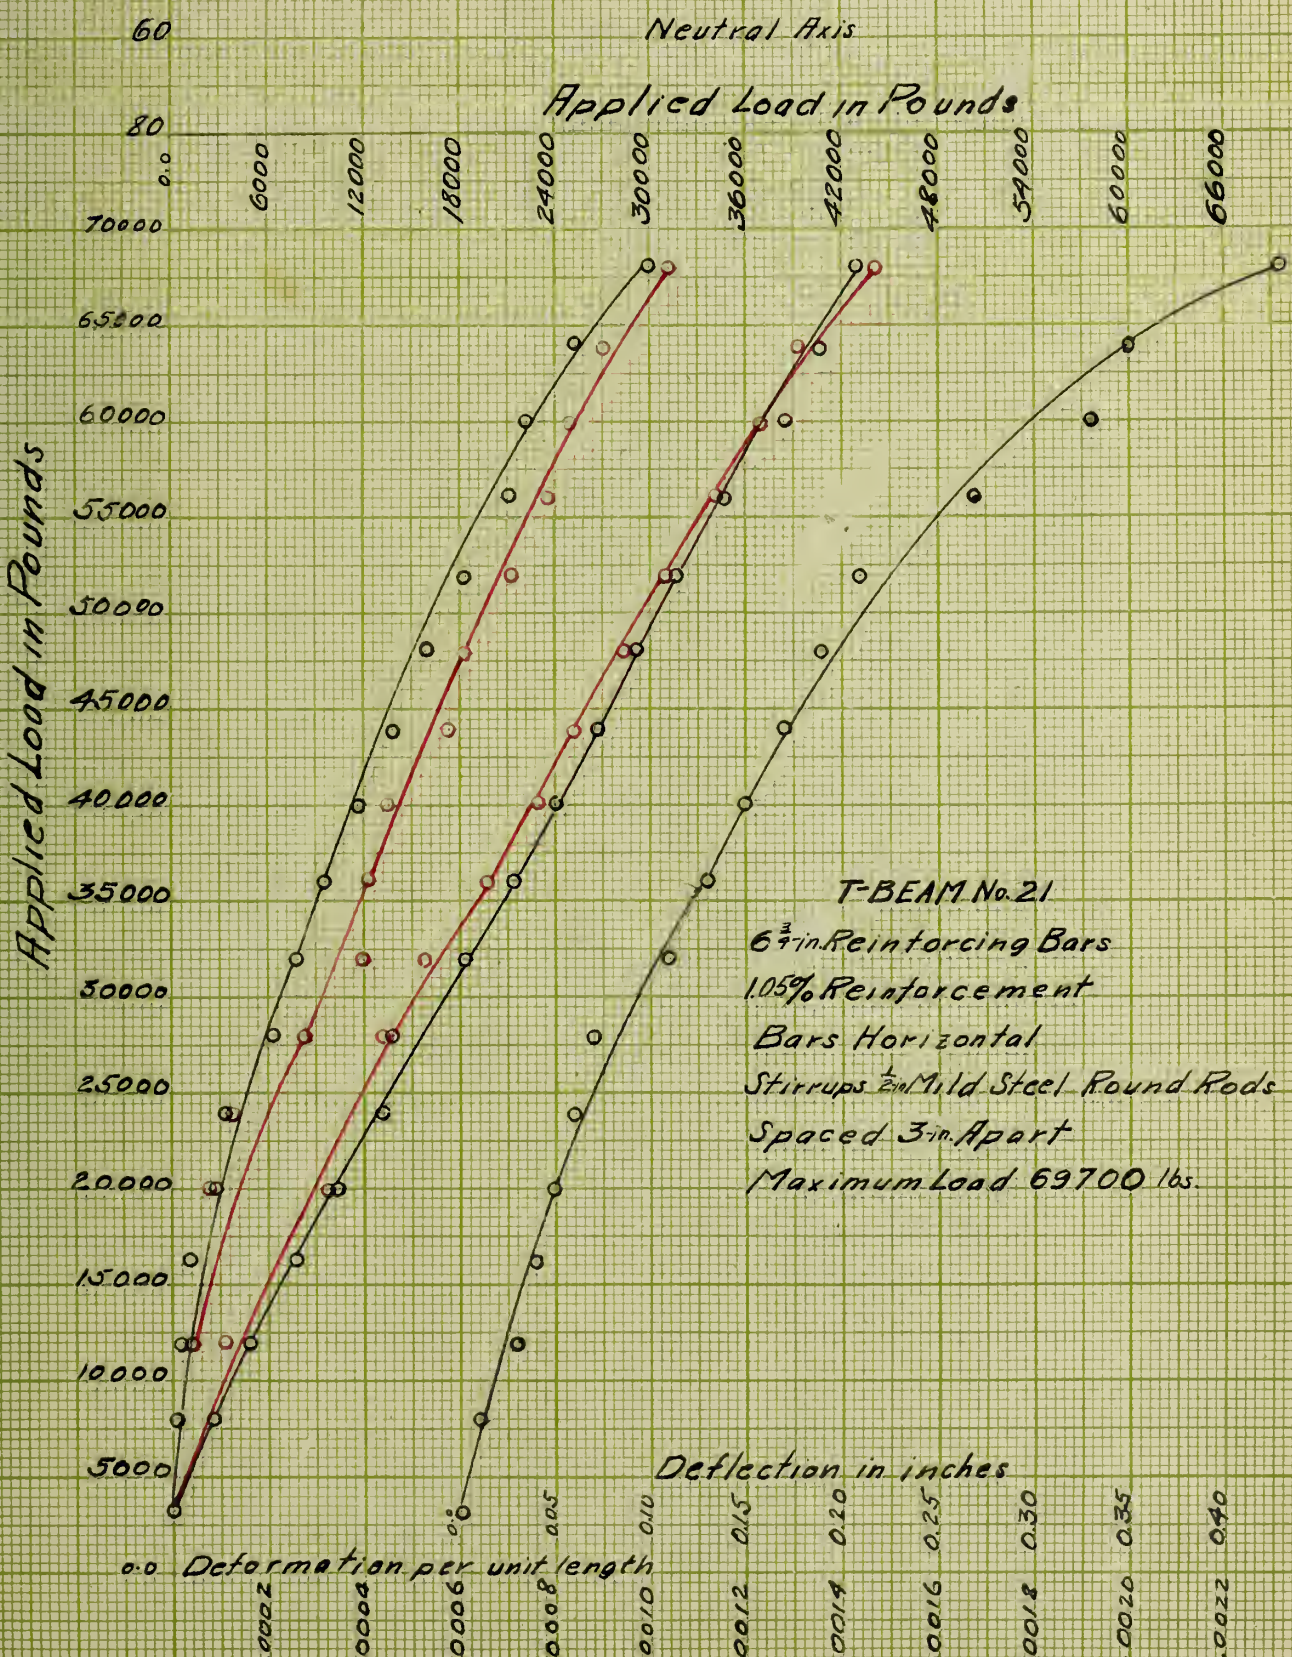 60
Neutral Axis
Applied Load in Pounds
80
0.0 6000 12000 18000 24000 30000 36000 42000 48000 54000 60000 66000
70000
65000
60000
55000
50000
45000
40000
35000
30000
25000
20000
15000
10000
5000
Applied Load in Pounds
T-BEAM No. 21
6 3/4-in. Reinforcing Bars
1.05% Reinforcement
Bars Horizontal
Stirrups 1/2 in Mild Steel Round Rods
Spaced 3-in. Apart
Maximum Load 69700 lbs.
Deflection in inches
0.0 0.05 0.10 0.15 0.20 0.25 0.30 0.35 0.40
0.0 Deformation per unit length
.0002 .0004 .0006 .0008 .0010 .0012 .0014 .0016 .0018 .0020 .0022